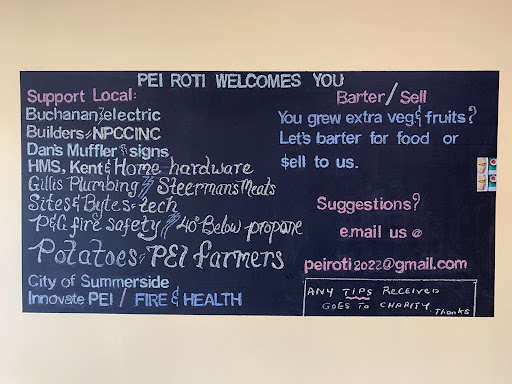 PEI ROTI WELCOMES YOU
Support Local:
Buchanan electric
Builders NPCCINC
Dan's Muffler signs
HMS, Kent & Home hardware
Gillis Plumbing Steerman's Meats
Sites & Bytes tech
P&G fire safety 40 Below propane
Potatoes PEI farmers
City of Summerside
Innovate PEI / FIRE & HEALTH
Barter/Sell
You grew extra veg & fruits?
Let's barter for food or
$ell to us.
Suggestions?
e.mail us @
peiroti2022@gmail.com
ANY TIPS RECEIVED
GOES TO CHARITY.
Thanks